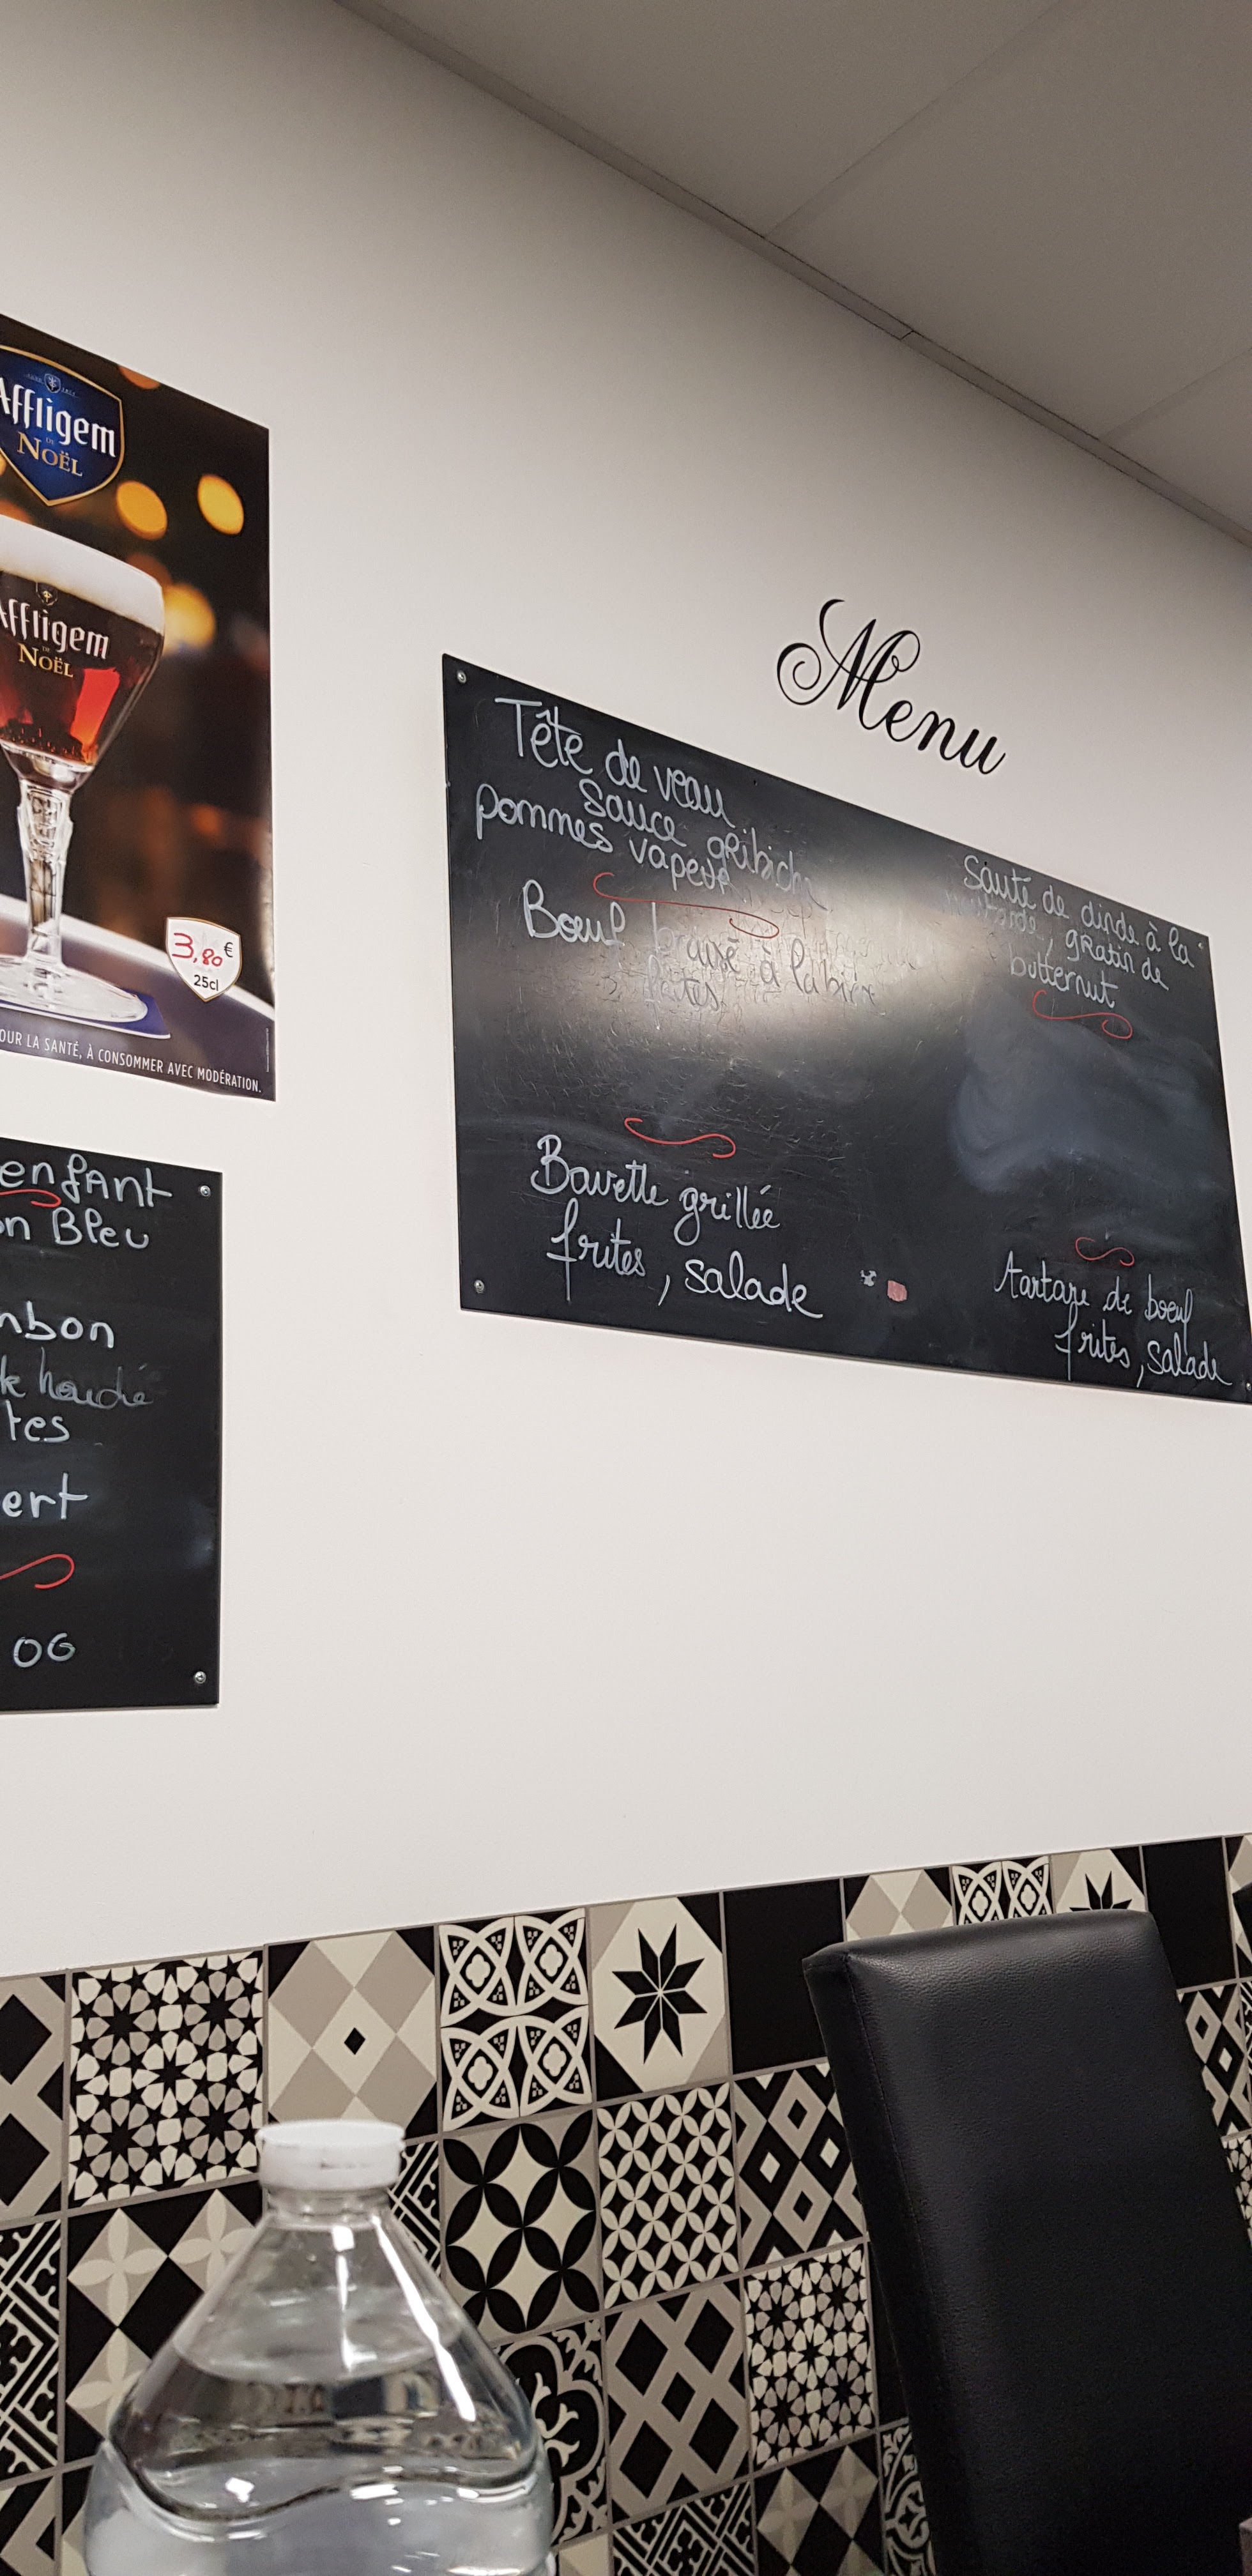 Affligem
DE
NOËL
Affligem
DE
NOËL
3,80€
25cl
POUR LA SANTÉ, À CONSOMMER AVEC MODÉRATION.
enfant
on Bleu
mbon
haché
tes
ert
06
Menu
Tête de veau
sauce gribiche
pommes vapeur
Bœuf braisé à la bière
frites
Bavette grillée
frites, salade
Sauté de dinde à la
moutarde, gratin de
butternut
Tartare de bœuf
frites, salade